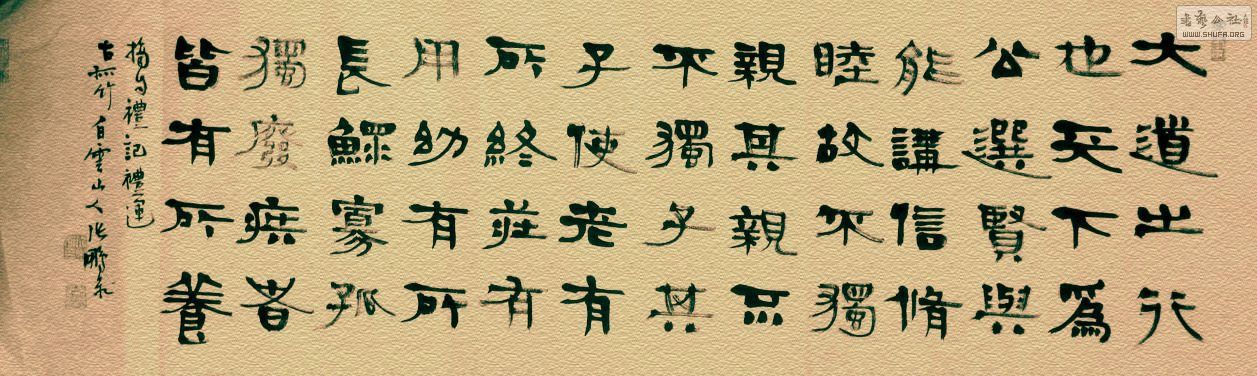 大道之行
也天下爲
公選賢與
能講信脩
睦故不獨
親其親
不獨子其
子使老有
所終莊有
用幼有所
長鰥寡孤
獨廢疾者
皆有所養
摘句禮記禮運
古孤竹白雲山人張鵬
書藝公社
WWW.SHUFA.ORG